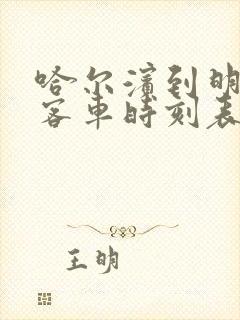 哈尔滨到明
客车时刻表
王明